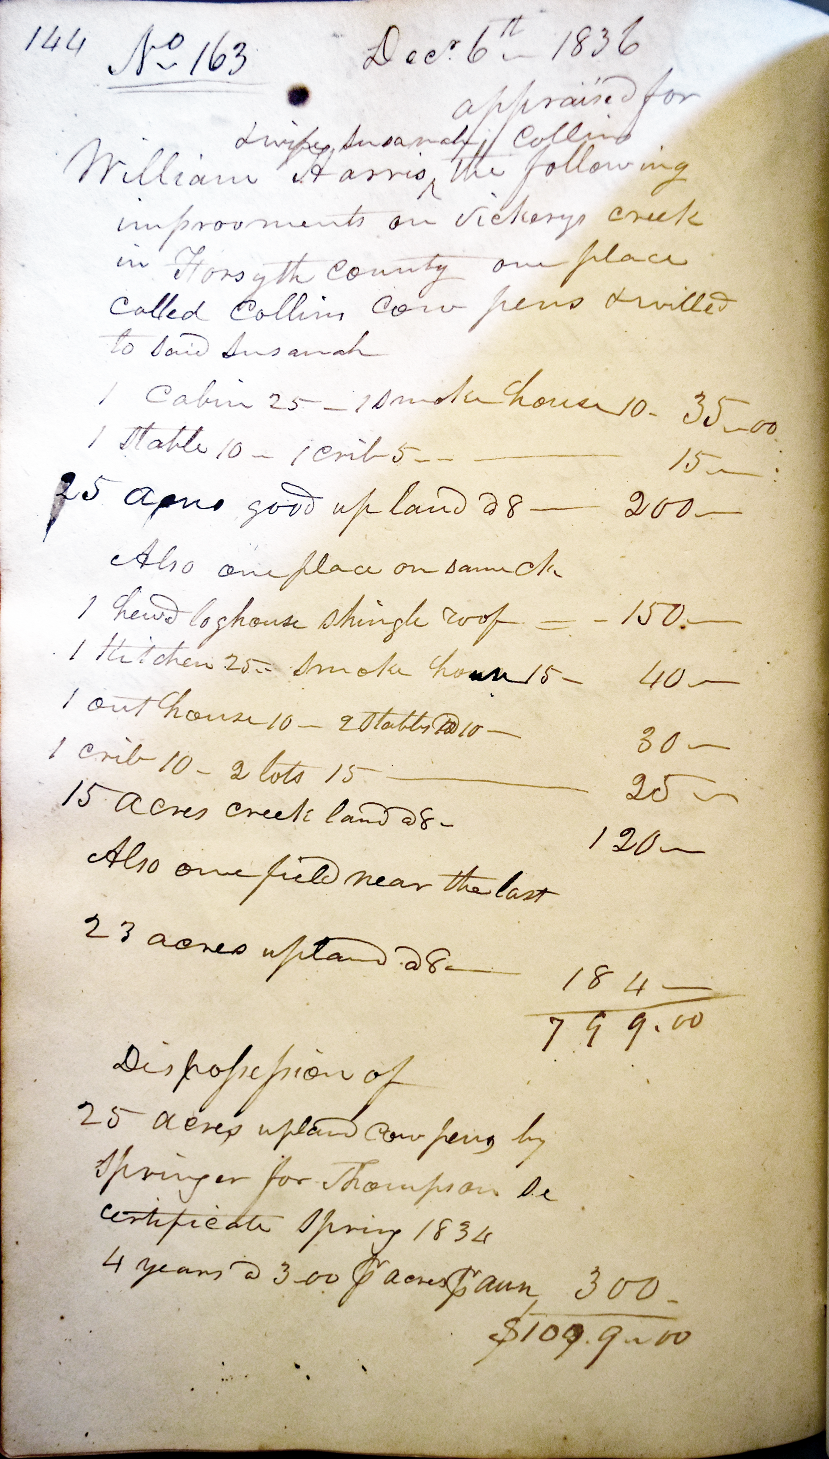 144 No 163 Decr. 6th 1836
appraised for
& wife, Susanah, Collins
William Harris, the following
improvments on Vickerys creek
in Forsyth County one place
called Collins Cow pens & willed
to said Susanah
1 Cabin 25 - 1 smoke house 10 - 35-00
1 Stable 10 - 1 crib 5 -- 15-
25 acres good up land @ 8 - 200-
Also one place on same ck
1 hewd loghouse shingle roof = - 150.-
1 Kitchen 25 - smoke house 15 - 40-
1 out house 10 - 2 Stables @ 10 - 30-
1 crib 10 - 2 lots 15 - 25-
15 acres creek land @ 8 - 120-
Also one field near the last
23 acres upland @ 8 - 184-
799.00
Dispossession of
25 acres upland Cow pens by
Springer for Thompson se
certificate Spring 1834
4 years @ 3-00 pr acres pr aun, 300-
$1099-00